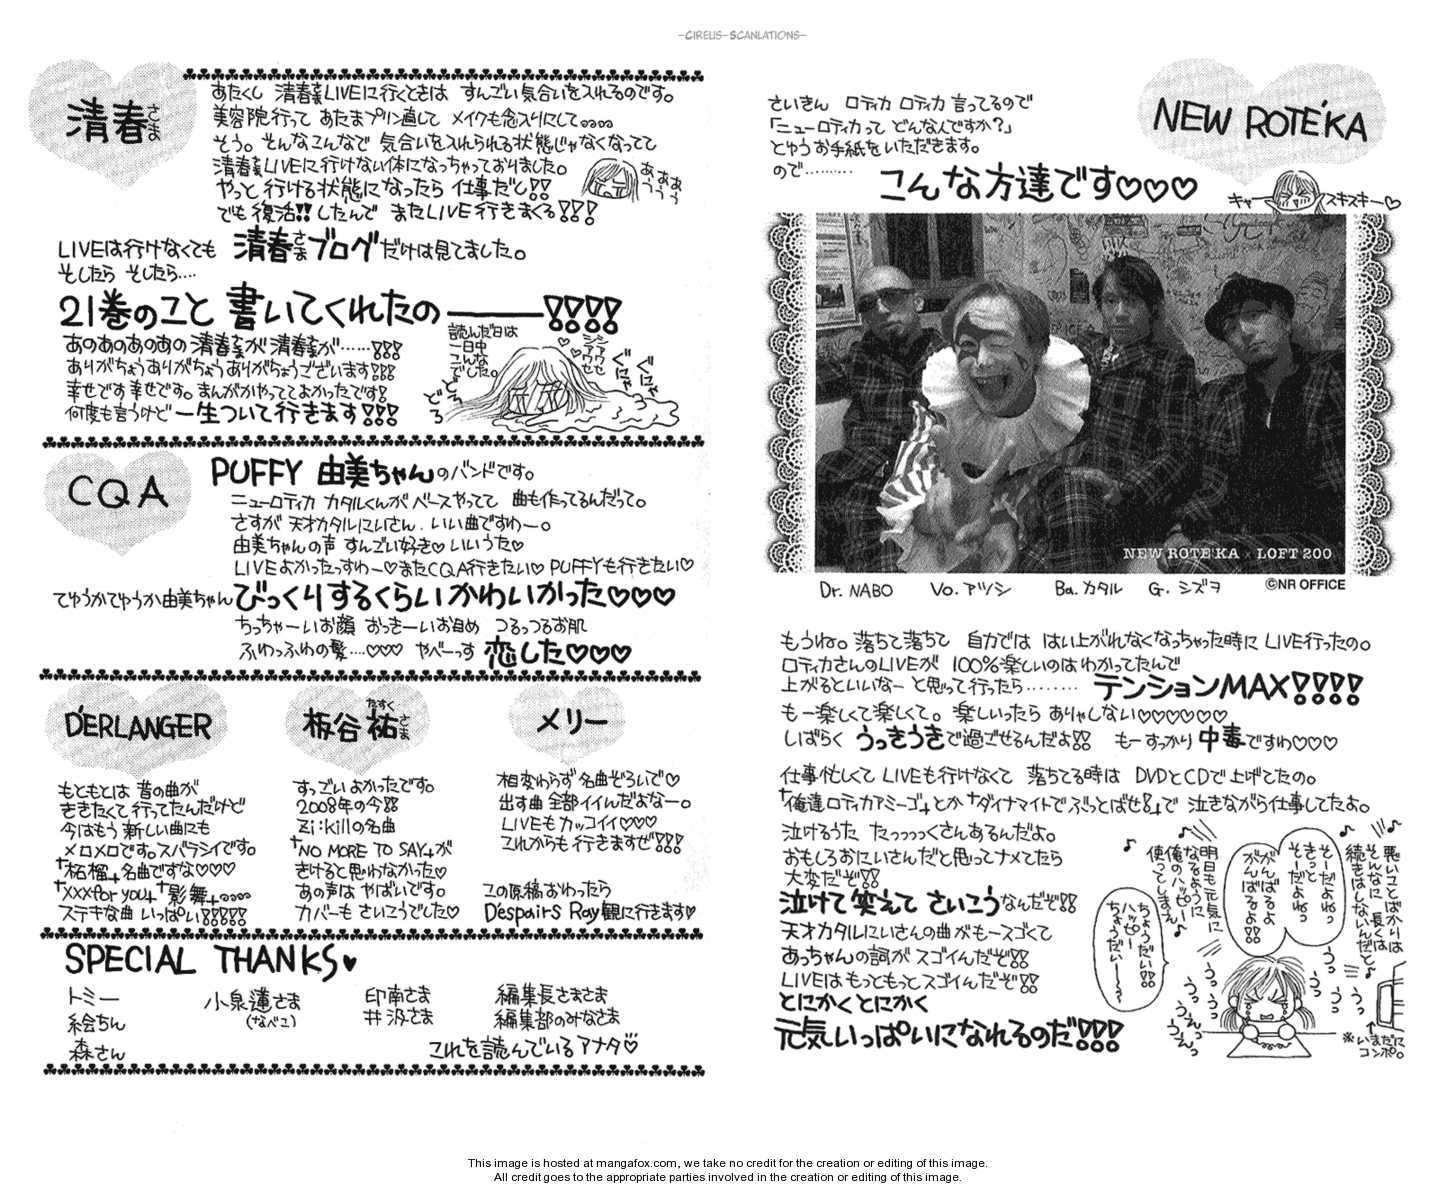 -CIRELIS-SCANLATIONS-
NEW ROTE'KA
さいきん ロティカ ロティカ 言ってるので
「ニューロティカって どんな人ですか?」
とゆうお手紙をいただきます。
ので………
こんな方達です♡♡♡
キャー
スキスキー♡
NEW ROTE'KA × LOFT 200
Dr. NABO Vo. アツシ Ba. カタル G. シズヲ
©NR OFFICE
もうね。落ちて落ちて 自力では はい上がれなくなっちゃった時に LIVE行ったの。
ロティカさんのLIVEが 100%楽しいのはわかってたんで
上がるといいなー と思って行ったら………
テンションMAX!!!!
もー楽しくて楽しくて。楽しいったら ありゃしない♡♡♡♡♡♡
しばらく うっきうきで過ごせるんだよ!! もーすっかり中毒ですわ♡♡♡
仕事忙しくて LIVEも行けなくて 落ちてる時は DVDとCDで上げてたの。
「俺達ロティカアミーゴ」とか「ダイナマイトでぶっとばせ!」で 泣きながら仕事してたよ。
泣けるうた たっっっっくさんあるんだよ。
おもしろおにいさんだと思ってナメてたら
大変だぞ!!
泣けて笑えて さいこうなんだぞ!!
天才カタルにいさんの曲がもースゴくて
あっちゃんの詞が スゴイんだぞ!!
LIVEはもっともっとスゴイんだぞ!!
とにかくとにかく
元気いっぱいになれるのだ!!!
悪いことばかりは
そんなに 長くは
続きはしないんだと♪
そーだよねっ
きっと
そーだよねっ
がんばるよ
がんばるよ!!
明日も元気に
なるように
俺のハッピー
使ってしまえ♪
ちょうだい!!
ハッピー
ちょうだい〜〜
うっ
うっ
※いまだに
コンポ。
清春さま
あたくし 清春さまLIVEに行くときは すんごい気合いを入れるのです。
美容院行って あたまプリン直して メイクも念入りにして。。。。
そう。そんなこんなで 気合いを入れられる状態じゃなくなってて
清春さまLIVEに行けない体になっちゃっておりました。
やっと 行ける状態になったら 仕事だし!!
でも復活!!したんで またLIVE行きまくる!!!
あぁ
うぅ
LIVEは行けなくても 清春さまブログだけは見てました。
そしたら そしたら….
21巻のこと 書いてくれたの———!!!!
あのあのあのあの清春さまが清春さまが……!!!
ありがちょうありがちょうありがちょうございます!!!
幸せです幸せです。まんがかやっててよかったです!
何度も言うけど一生ついて行きます!!!
読んだ日は
一日中
こんな
でした。
シアワセ
シアワセ
ぐにゃ
ぐにゃ
どろ
どろ
CQA
PUFFY 由美ちゃんのバンドです。
ニューロティカ カタルくんが ベースやってて 曲も作ってるんだって。
さすが 天才カタルにいさん. いい曲ですわー。
由美ちゃんの声 すんごい好き♡ いいうた♡
LIVEよかったっすわー♡またCQA行きたい♡ PUFFYも行きたい♡
てゆうかてゆうか由美ちゃんびっくりするくらいかわいかった♡♡♡
ちっちゃーいお顔 おっきーいお目め つるっつるお肌
ふわっふわの髪….♡♡♡ やべーっす 恋した♡♡♡
D'ERLANGER
もともとは 昔の曲が
ききたくて行ってたんだけど
今はもう 新しい曲にも
メロメロです。スバラシイです。
「柘榴」名曲ですな♡♡♡
「xxx for you」「影舞」。。。。
ステキな曲 いっぱい!!!!!
板谷祐さま
たすく
すっごいよかったです。
2008年の今!!
Zi:killの名曲
「NO MORE TO SAY」が
きけると思わなかった♡
あの声は やばいです。
カバーも さいこうでした♡
メリー
相変わらず名曲ぞろいで♡
出す曲 全部イイんだよなー。
LIVEも カッコイイ♡♡♡
これからも 行きますぜ!!!
この原稿おわったら
D'espairs Ray観に行きます♥
SPECIAL THANKS♥
トミー
絵ちん
森さん
小泉蓮さま
(なべこ)
印南さま
井汲さま
編集長さまさま
編集部のみなさま
これを読んでいるアナタ♡
This image is hosted at mangafox.com, we take no credit for the creation or editing of this image.
All credit goes to the appropriate parties involved in the creation or editing of this image.